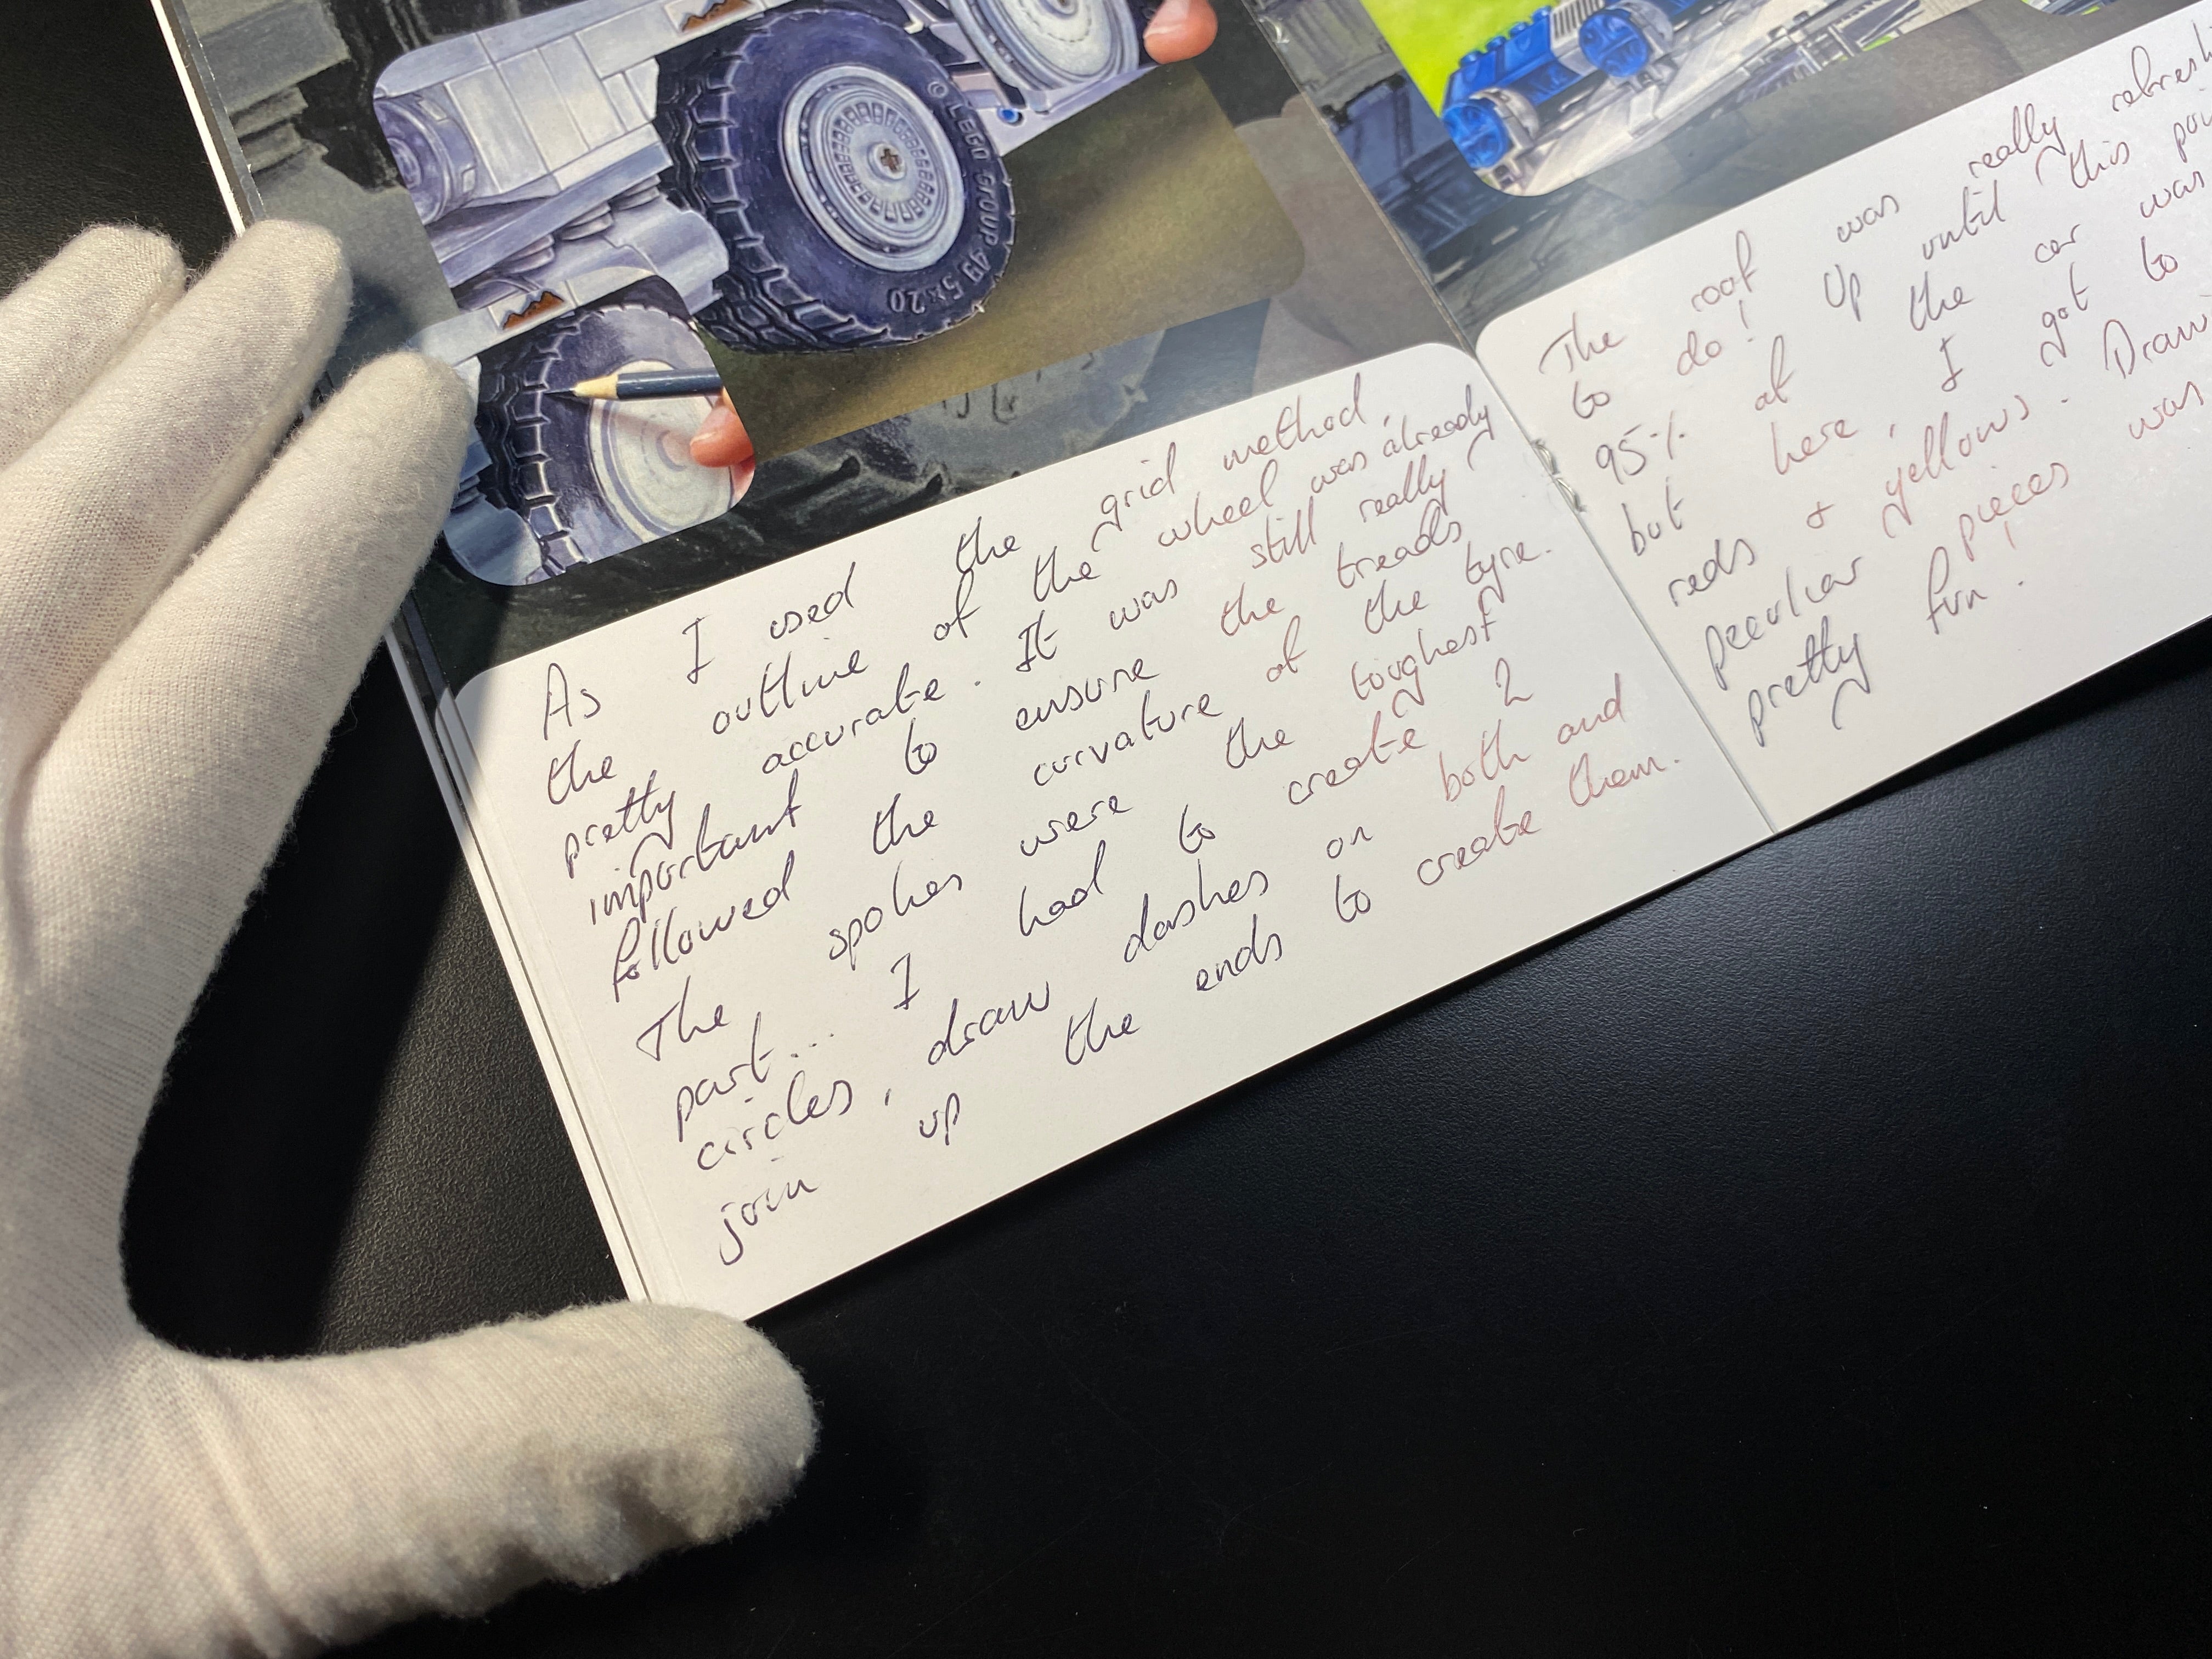 © LEGO GROUP 49.5x20
As I used the grid method,
the outline of the wheel was already
pretty accurate. It was still really
important to ensure the treads
followed the curvature of the tyre.
The spokes were the toughest
part... I had to create 2
circles, draw dashes on both and
join up the ends to create them.
The roof was really
to do! Up until this
95% of the car was
but here, I got to
reds & yellows.
peculiar pieces was
pretty fun!